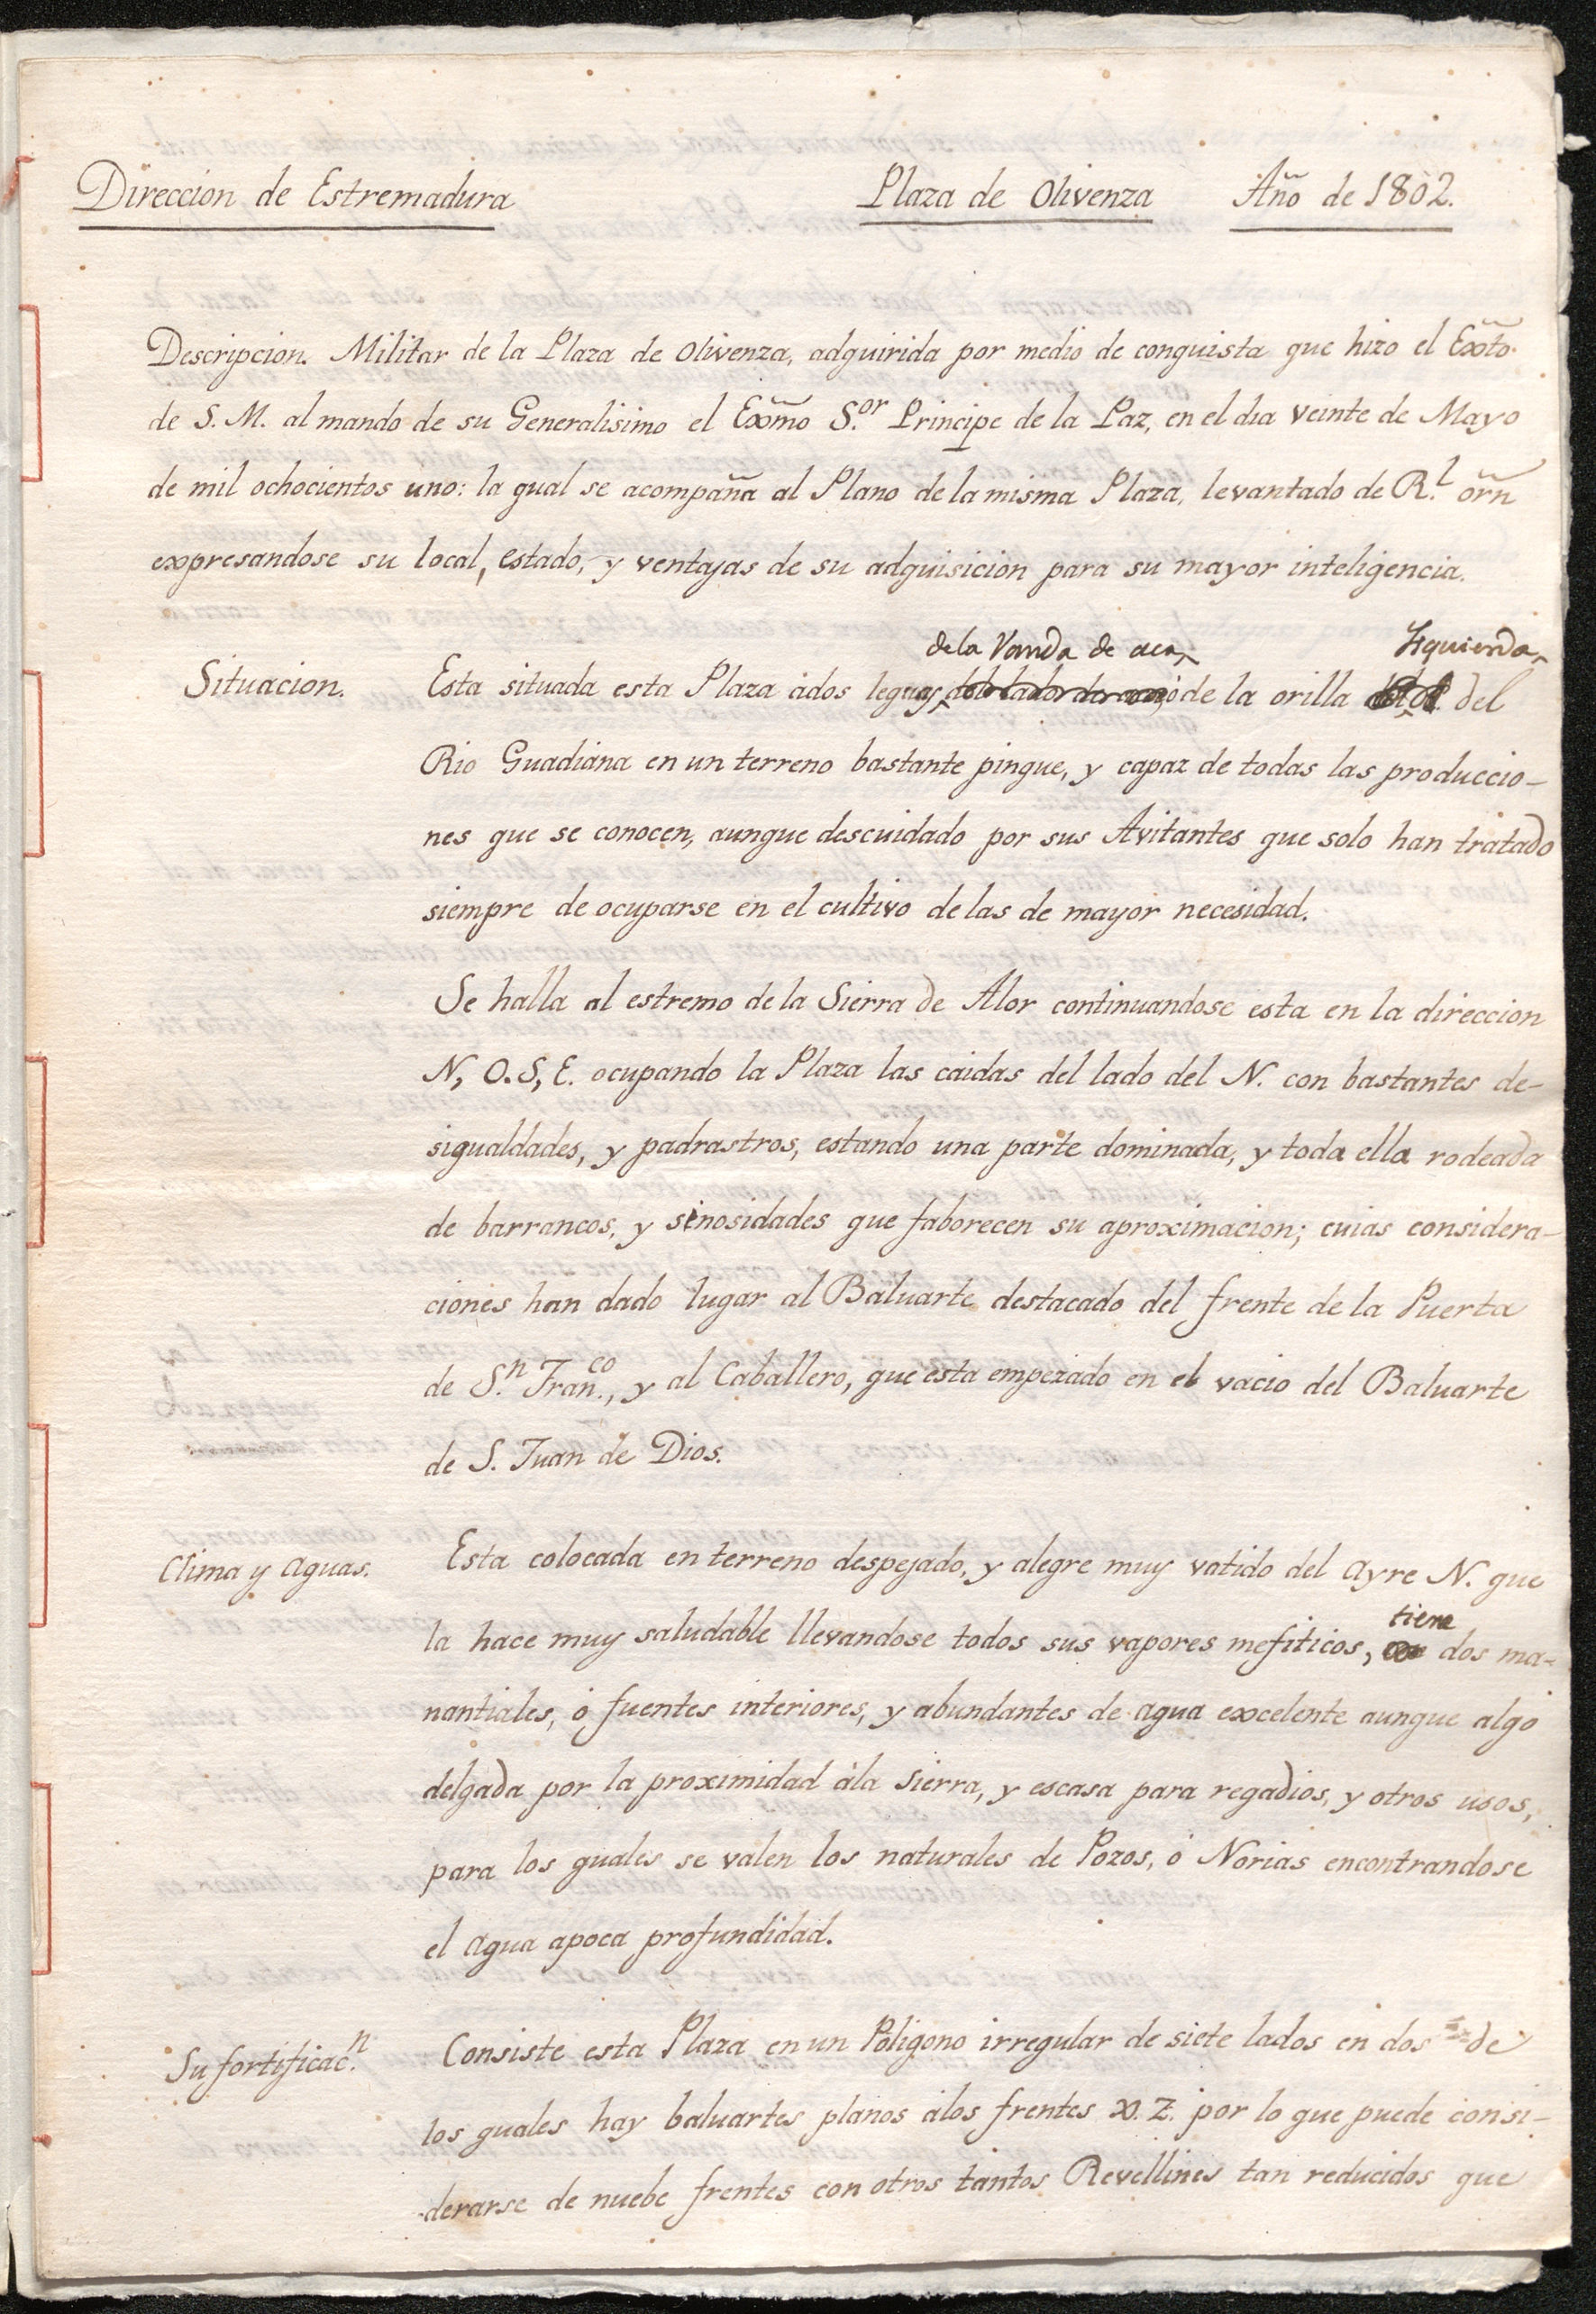 Direccion de Estremadura Plaza de Olivenza Año de 1802.
Descripcion. Militar de la Plaza de Olivenza, adquirida por medio de conquista que hizo el Exto.
de S. M. al mando de su Generalisimo el Exmo S.or Principe de la Paz, en el dia veinte de Mayo
de mil ochocientos uno: la qual se acompaña al Plano de la misma Plaza, levantado de R.l orn
expresandose su local, estado, y ventajas de su adquisicion para su mayor inteligencia.
de la Vanda de aca, Izquierda,
Situacion. Esta situada esta Plaza ádos leguas de la orilla del
Rio Guadiana en un terreno bastante pingue, y capaz de todas las produccio-
nes que se conocen, aunque descuidado por sus Avitantes que solo han tratado
siempre de ocuparse en el cultivo de las de mayor necesidad.
Se halla al estremo de la Sierra de Alor continuandose esta en la direccion
N, O. S, E. ocupando la Plaza las caidas del lado del N. con bastantes de-
sigualdades, y padrastros, estando una parte dominada, y toda ella rodeada
de barrancos, y sinosidades que faborecen su aproximacion; cuias considera-
ciones han dado lugar al Baluarte destacado del frente de la Puerta
de S.n Fran.co, y al Caballero, que esta empezado en el vacio del Baluarte
de S. Juan de Dios.
Clima y Aguas. Esta colocada en terreno despejado, y alegre muy vatido del Ayre N. que
tiene
la hace muy saludable llevandose todos sus vapores mefiticos, dos ma-
nantiales, ó fuentes interiores, y abundantes de agua excelente aunque algo
delgada por la proximidad ála Sierra, y escasa para regadios, y otros usos,
para los quales se valen los naturales de Pozos, ó Norias encontrandose
el Agua apoca profundidad.
Su fortificac.n Consiste esta Plaza en un Poligono irregular de siete lados en dos de
los quales hay baluartes planos álos frentes X. Z. por lo que puede consi-
derarse de nuebe frentes con otros tantos Revellines tan reducidos que